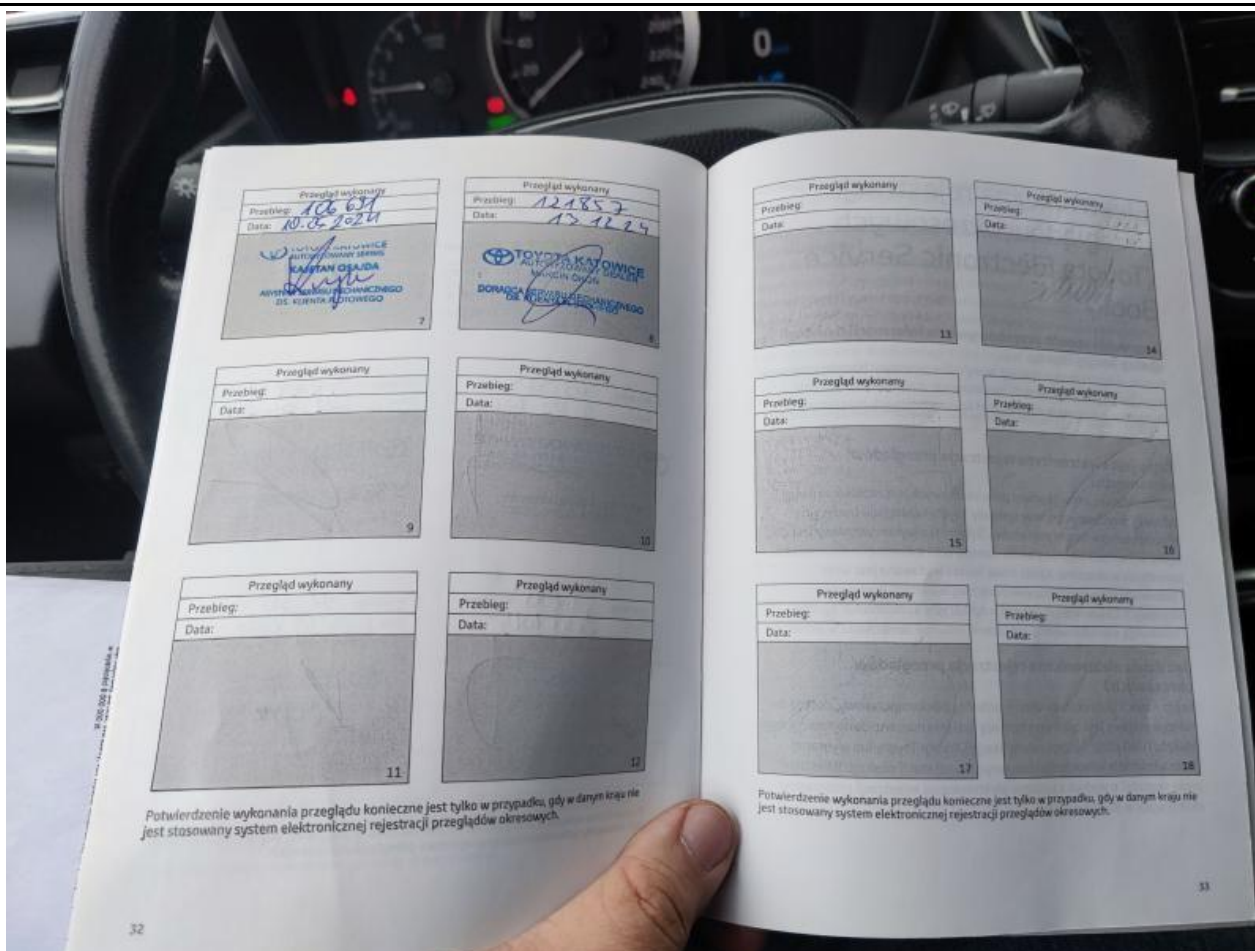 Przegląd wykonany
Przebieg: 106 691
Data: 10.05.2024
TOYOTA KATOWICE
AUTORYZOWANY SERWIS
KAJETAN OSAJDA
ASYSTENT SERWISU MECHANICZNEGO
DS. KLIENTA FLOTOWEGO
7
Przegląd wykonany
Przebieg: 121857
Data: 13 12 24
TOYOTA KATOWICE
AUTORYZOWANY DEALER
MARCIN
DORADCA SERWISU MECHANICZNEGO
DS. KLIENTA
8
Przegląd wykonany
Przebieg:
Data:
9
Przegląd wykonany
Przebieg:
Data:
10
Przegląd wykonany
Przebieg:
Data:
11
Przegląd wykonany
Przebieg:
Data:
12
Potwierdzenie wykonania przeglądu konieczne jest tylko w przypadku, gdy w danym kraju nie
jest stosowany system elektronicznej rejestracji przeglądów okresowych.
32
Przegląd wykonany
Przebieg:
Data:
13
Przegląd wykonany
Przebieg:
Data:
14
Przegląd wykonany
Przebieg:
Data:
15
Przegląd wykonany
Przebieg:
Data:
16
Przegląd wykonany
Przebieg:
Data:
17
Przegląd wykonany
Przebieg:
Data:
18
Potwierdzenie wykonania przeglądu konieczne jest tylko w przypadku, gdy w danym kraju nie
jest stosowany system elektronicznej rejestracji przeglądów okresowych.
33